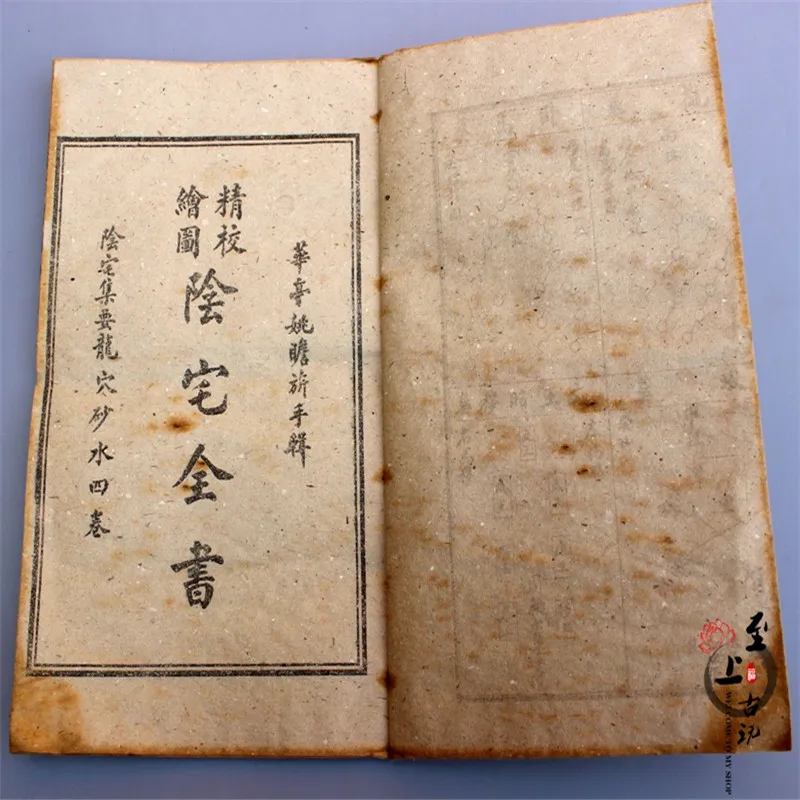 華亭姚瞻旂手輯
精校
繪圖
陰宅全書
陰宅集要龍穴砂水四卷
至上古玩
WELCOME TO MY SHOP